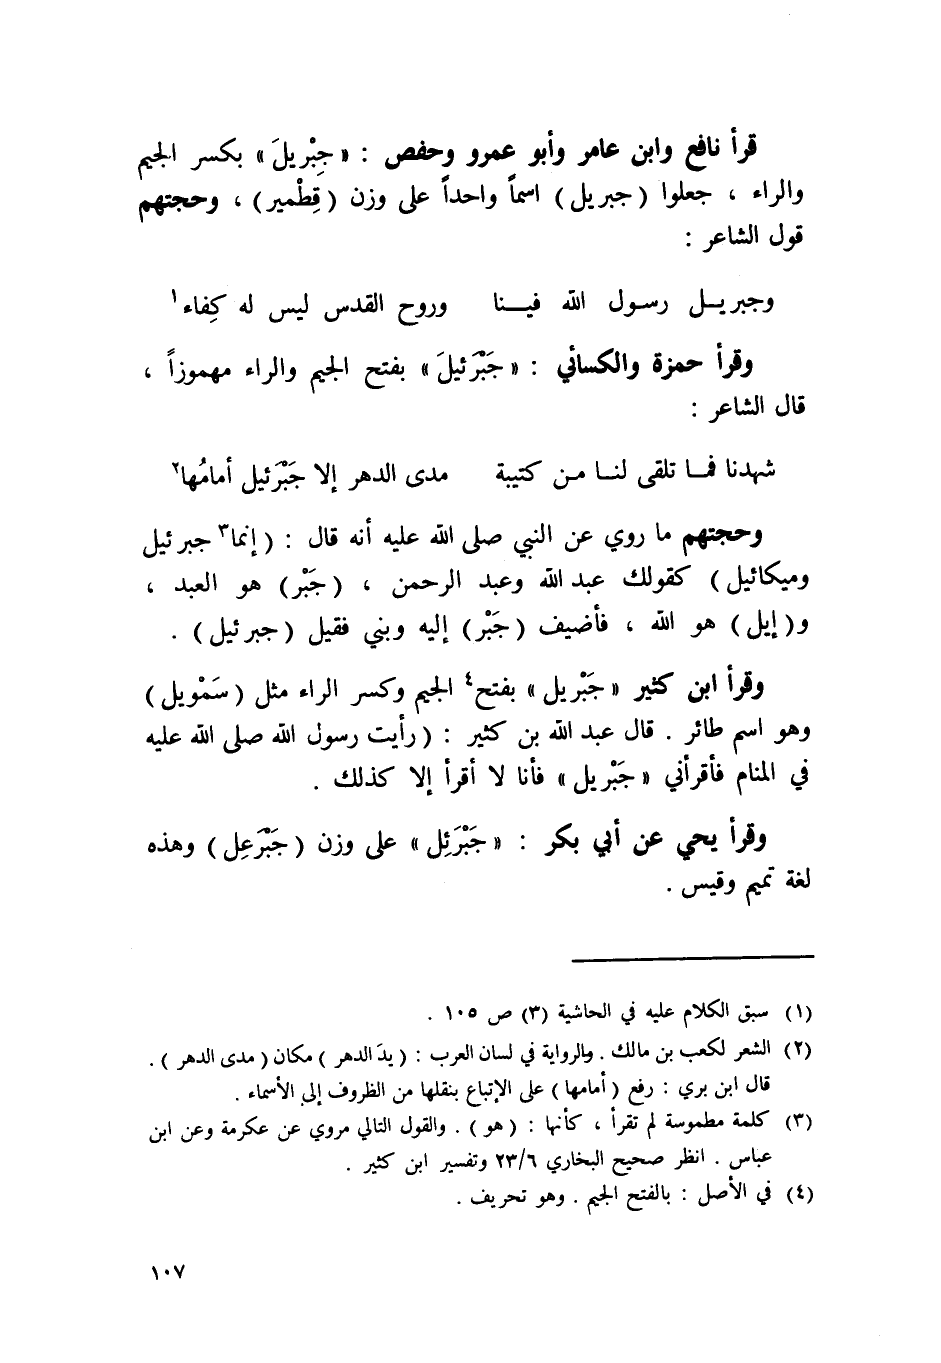 قرأ نافع وابن عامر وأبو عمرو وحفص : « جِبْرِيلَ » بكسر الجيم
والراء ، جعلوا ( جبريل ) اسماً واحداً على وزن ( قِطْمير ) ، وحجتهم
قول الشاعر :
وجبريــل رسـول الله فيــنا وروح القدس ليس له كِفاء١
وقرأ حمزة والكسائي : « جَبْرَئيلَ » بفتح الجيم والراء مهموزاً ،
قال الشاعر :
شهدنا فمـا تلقى لنـا مـن كتيبة مدى الدهر إلا جَبْرَئيل أمامُها٢
وحجتهم ما روي عن النبي صلى الله عليه أنه قال : ( إنما٣ جبرئيل
وميكائيل ) كقولك عبد الله وعبد الرحمن ، ( جَبْر ) هو العبد ،
و( إيل ) هو الله ، فأضيف ( جَبْر ) إليه وبني فقيل ( جبرئيل ) .
وقرأ ابن كثير « جَبْريل » بفتح٤ الجيم وكسر الراء مثل ( سَمْويل )
وهو اسم طائر . قال عبد الله بن كثير : ( رأيت رسول الله صلى الله عليه
في المنام فأقرأني « جَبْريل » فأنا لا أقرأ إلا كذلك .
وقرأ يحي عن أبي بكر : « جَبْرَئِل » على وزن ( جَبْرَعِل ) وهذه
لغة تميم وقيس .
(١) سبق الكلام عليه في الحاشية (٣) ص ١٠٥ .
(٢) الشعر لكعب بن مالك . والرواية في لسان العرب : ( يدَ الدهر ) مكان ( مدى الدهر ) .
قال ابن بري : رفع ( أمامها ) على الإتباع بنقلها من الظروف إلى الأسماء .
(٣) كلمة مطموسة لم تقرأ ، كأنها : ( هو ) . والقول التالي مروي عن عكرمة وعن ابن
عباس . انظر صحيح البخاري ٢٣/٦ وتفسير ابن كثير .
(٤) في الأصل : بالفتح الجيم . وهو تحريف .
١٠٧